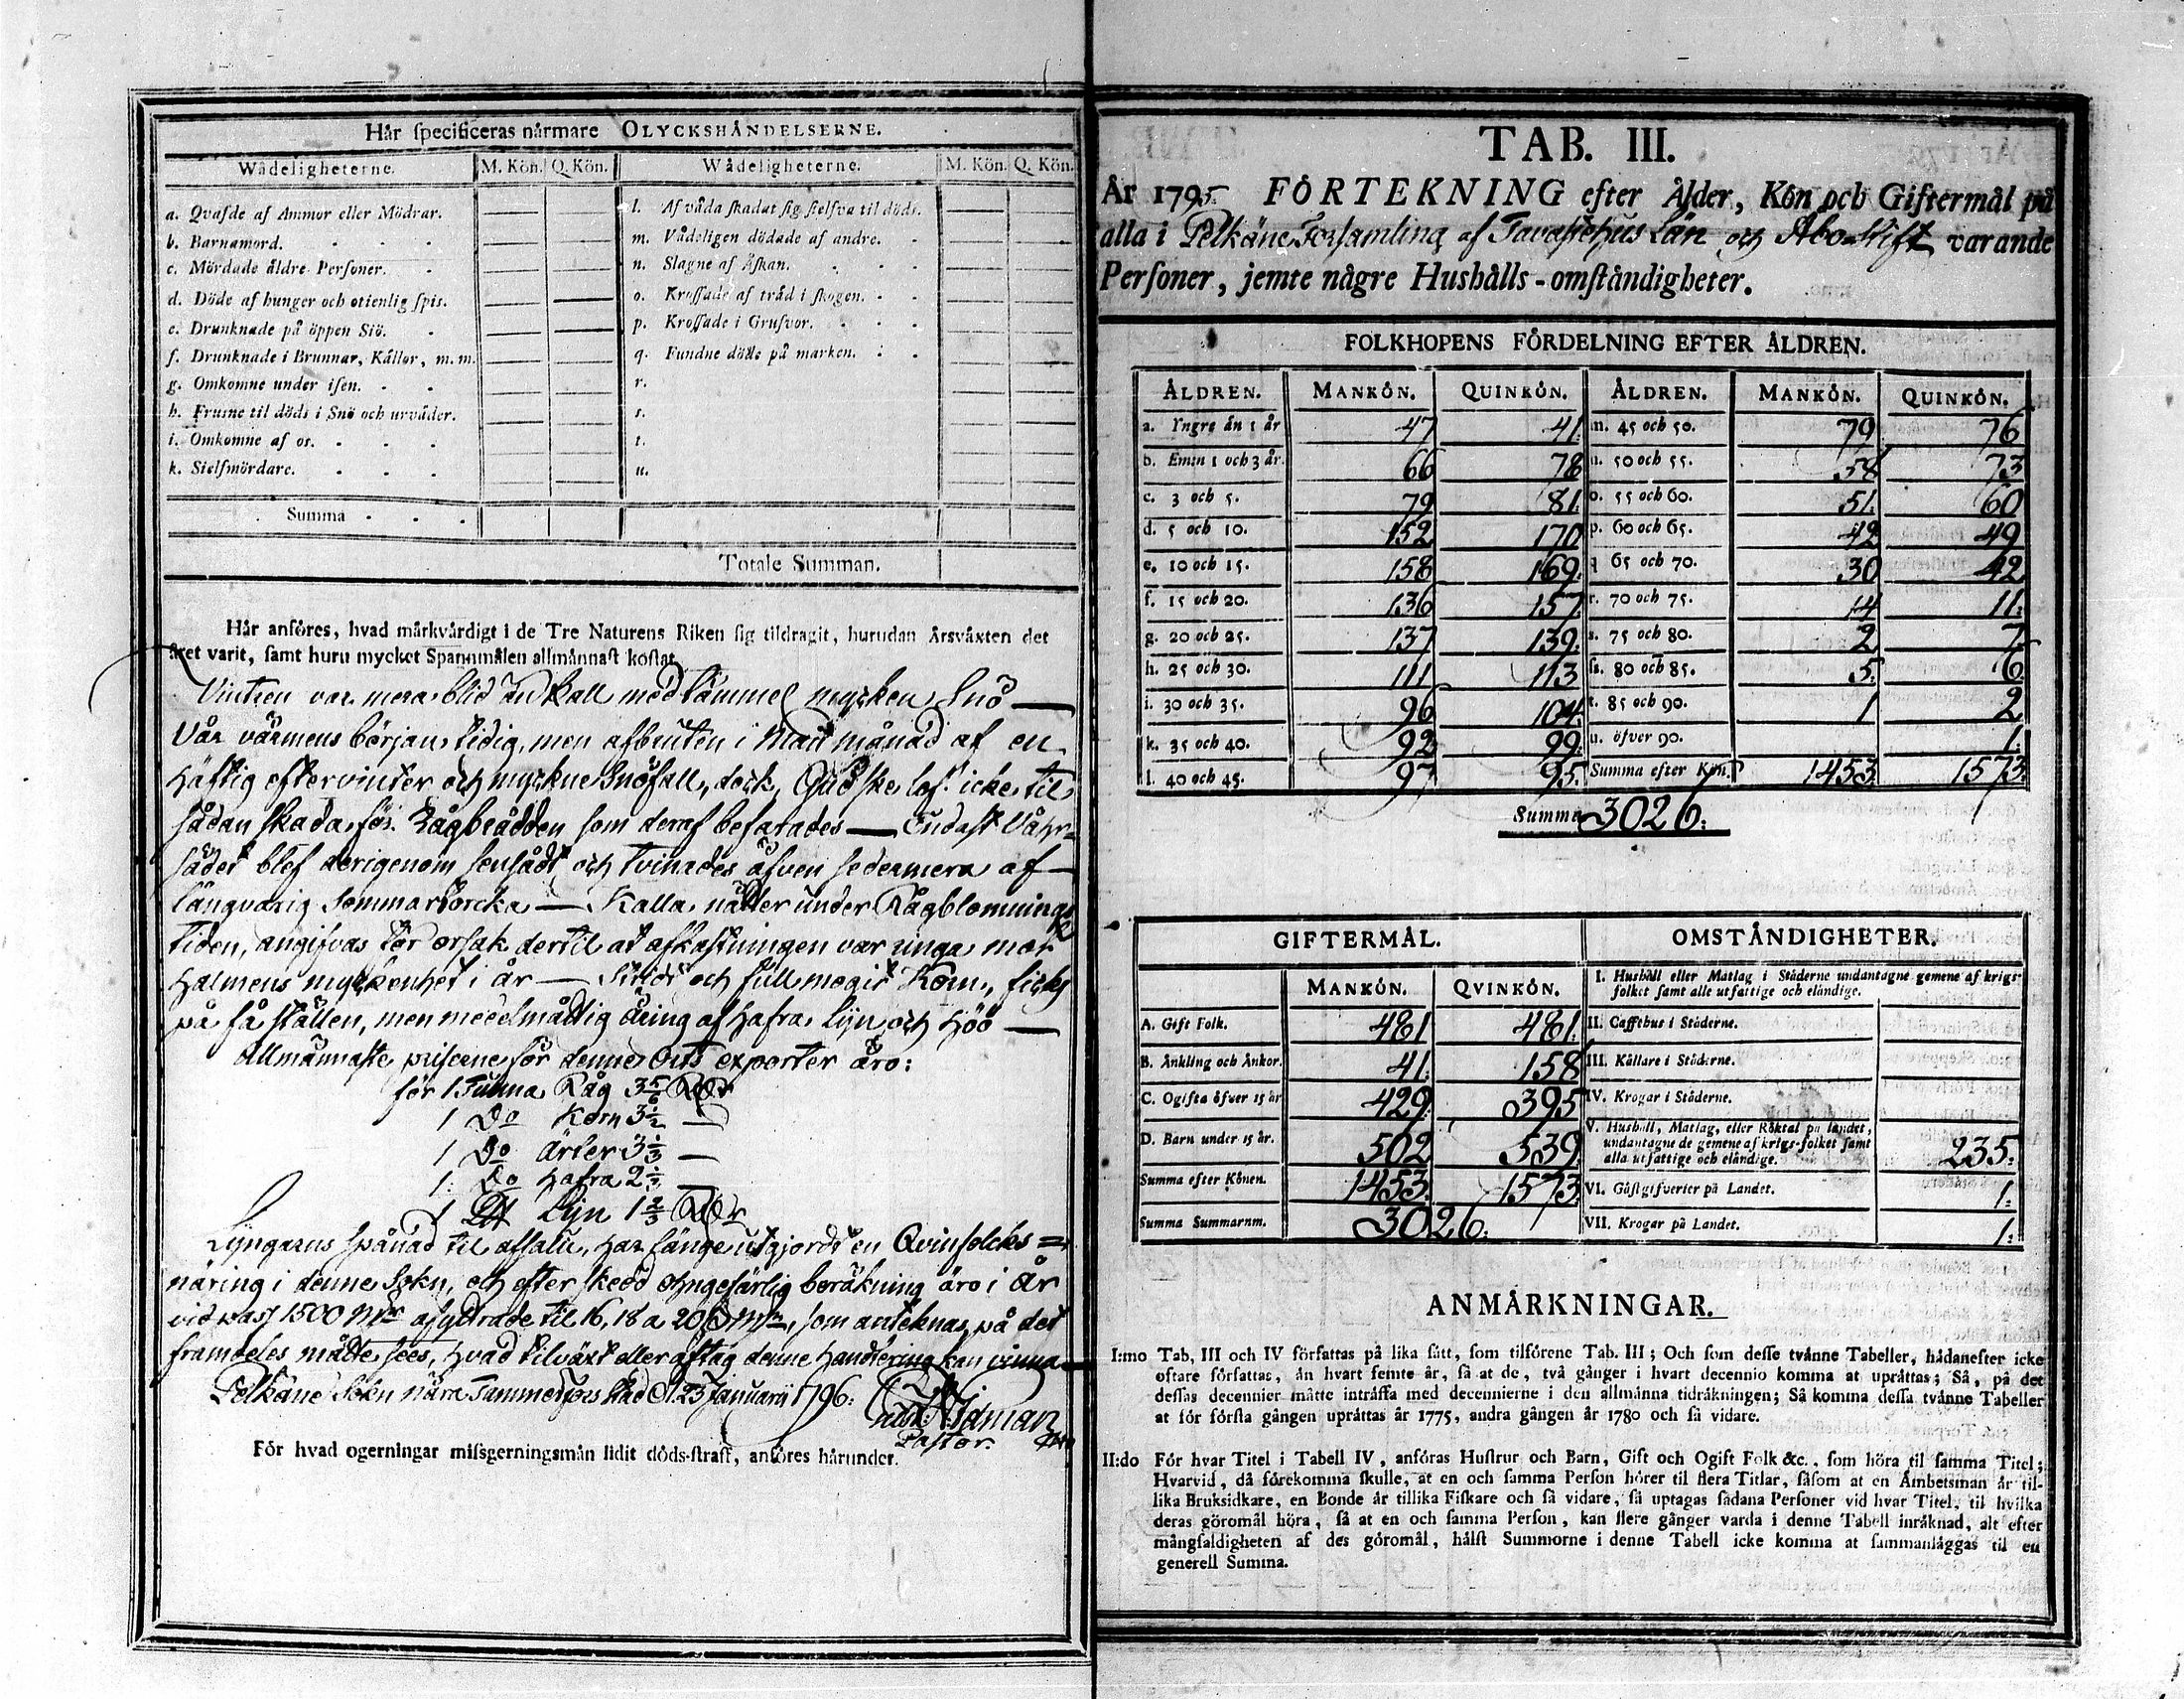 Hår specificeras nårmare OLYCKSHÅNDELSERNE.
Wådeligheterne. M. Kön. Q. Kön. Wådeligheterne. M. Kön. Q. Kön.
a. Qvafde af Ammor eller Mödrar.
b. Barnamord.
c. Mördade åldre Personer.
d. Döde af hunger och otienlig spis.
e. Drunknade på öppen Siö.
f. Drunknade i Brunnar, Kållor, m.m.
g. Omkomne under isen.
h. Frusne til döds i Snö och urvåder.
i. Omkomne af os.
k. Sielfmördare.
l. Af våda skadat sig sielfva til döds.
m. Vådeligen dödade af andre.
n. Slagne af Åskan.
o. Krossade af tråd i skogen.
p. Krossade i Grufvor.
q. Fundne döde på marken.
r.
s.
t.
u.
Summa
Totale Summan.
Hår anföres, hvad mårkvårdigt i de Tre Naturens Riken sig tildragit, hurudan Årsvåxten det
året varit, samt huru mycket Spannmålen allmånnast kostat.
Vintren var mera blid än kall med tämmel. mycken Snö —
Vår värmens början tidig, men afbruten i Maii månad af en
häftig eftervinter och myckne Snöfall, dock, Gud ske lof! icke til
sådan skada för Rågbrådden som deraf befarades — Endast Våhr-
sädet blef derigenom sensådt och tvinades äfven sedermera af
långvarig Sommartorcka — Kalla nätter under Rågblomnings
tiden, angifvas för orsak dertil at afkastningen var ringa mot
halmens myckenhet i år — Stridt och fullmogit Korn, ficks
på få ställen, men medelmåttig äring af Hafra, Lijn och Höö —
Allmännaste priserne för denne Orts exporter äro:
för 1 Tunna Råg 3 5/6 RDr
1 Do Korn 3 1/2 —
1 Do ärter 3 1/3 —
1 Do hafra 2 1/3 —
1 Lijn 1 2/3 RDr
Lijngarns spånad til afsalu, har länge utgjordt en Qvinfolcks=
näring i denne Sokn, och efter skedd ohngefärlig beräkning äro i år
vid pass 1500 Mkr afyttrade til 16, 18 a 20 som anteknas på det
framdeles måtte sees, hvad tilväxt eller aftag denne handtering kan vinna
Pelkäne Sokn nära Tammerfors stad d. 23 Januarii 1796.
Idman
Pastor.
För hvad ogerningar missgerningsmån lidit döds-straff, anföres hårunder.
TAB. III.
År 1795 FÖRTEKNING efter Ålder, Kön och Giftermål på
alla i Pelkäne Församling af Tavastehus Län och Åbo Stift varande
Personer, jemte någre Hushålls-omståndigheter.
FOLKHOPENS FÖRDELNING EFTER ÅLDREN.
ÅLDREN. MANKÖN. QUINKÖN. ÅLDREN. MANKÖN. QUINKÖN.
a. Yngre ån 1 år 47 41. m. 45 och 50. 79 76
b. Emin 1 och 3 år. 66 78 n. 50 och 55. 58 73
c. 3 och 5. 79 81. o. 55 och 60. 51. 60
d. 5 och 10. 152 170 p. 60 och 65. 42 49
e. 10 och 15. 158 169. q 65 och 70. 30 42
f. 15 och 20. 136 157 r. 70 och 75. 14 11.
g. 20 och 25. 137 139. s. 75 och 80. 2 7.
h. 25 och 30. 111 113 ss. 80 och 85. 5. 6
i. 30 och 35. 96 104. t. 85 och 90. 1 2
k. 35 och 40. 92 99. u. öfver 90. 1.
l. 40 och 45. 97 95. Summa efter Kön. 1453 1573
Summa 3026.
GIFTERMÅL. OMSTÅNDIGHETER.
MANKÖN. QVINKÖN.
A. Gift Folk. 481 481.
B. Ånkling och Ånkor. 41. 158
C. Ogifta öfver 15 år 429. 395
D. Barn under 15 år. 502 539.
Summa efter Könen. 1453. 1573
Summa Summarum. 3026.
I. Hushåll eller Matlag i Ståderne undantagne gemene af krigs-
folket samt alle utfattige och elåndige.
II. Caffehus i Ståderne.
III. Kållare i Ståderne.
IV. Krogar i Ståderne.
V. Hushåll, Matlag, eller Röktal på landet,
undantagne de gemene af krigs-folket samt
alla utfattige och elåndige. 235.
VI. Gåstgifverier på Landet. 1.
VII. Krogar på Landet. 1.
ANMÅRKNINGAR.
I:mo Tab. III och IV författas på lika sått, som tilförene Tab. III; Och som desse tvånne Tabeller, hådanefter icke
oftare författas, ån hvart femte år, så at de, två gånger i hvart decennio komma at upråttas; Så, på det
dessas decennier måtte intråffa med decennierne i den allmånna tidråkningen; Så komma dessa tvånne Tabeller
at för första gången upråttas år 1775, andra gången år 1780 och så vidare.
II:do För hvar Titel i Tabell IV, anföras Hustrur och Barn, Gift och Ogift Folk &c., som höra til samma Titel;
Hvarvid, då förekomma skulle, at en och samma Person hörer til flera Titlar, såsom at en Åmbetsman år til-
lika Bruksidkare, en Bonde år tillika Fiskare och så vidare, så uptagas sådana Personer vid hvar Titel, til hvilka
deras göromål höra, så at en och samma Person, kan flere gånger varda i denne Tabell inråknad, alt efter
mångfaldigheten af des göromål, hålst Summorne i denne Tabell icke komma at sammanlåggas til en
generell Summa.